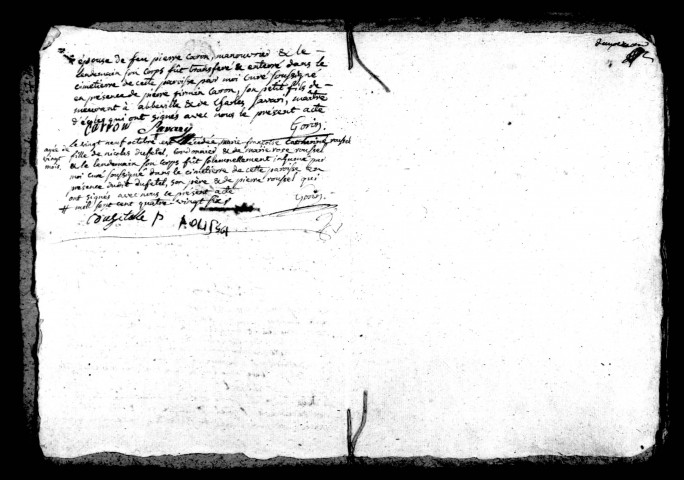 épouse de feu pierre Caron, manouvrier & le
lendemain son corps fût transferé & enterré dans le
cimetierre de cette paroisse par moi curé soussigné
en presence de pierre firmin Caron, son petit fils de
meurant à abbeville & de Charles Savari, maître
d'écoles qui ont signés avec nous le présent acte
CARRON Savary Gorin
le vingt neuf octobre est décédée marie françoise Catherine roussel
agée de vingt mois.
fille de nicolas dufétel, Cordonnier & de marie rose roussel
& le lendemain son corps fût solemnellement inhumé par
moi curé soussigné dans le cimetierre de cette paroisse en
présence dudit dufétel, son père & de pierre roussel qui
ont signés avec nous ce présent acte
# mill sept cent quatre vingt Gorin
ROUSSEL